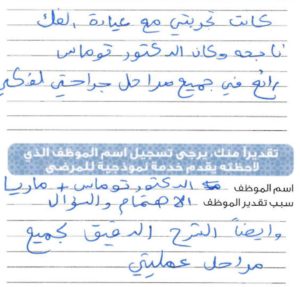 كانت تجربتي مع عيادة الفك
ناجحه وكان الدكتور توماس
رائع في جميع مراحل جراحتي لفكي
تقديراً منك، يرجى تسجيل اسم الموظف الذي
لاحظته يقدم خدمة نموذجية للمرضى
اسم الموظف الدكتور توماس + ماريا
سبب تقدير الموظف الاهتمام والسؤال
وايضاً الشرح الدقيق لجميع
مراحل عمليتي